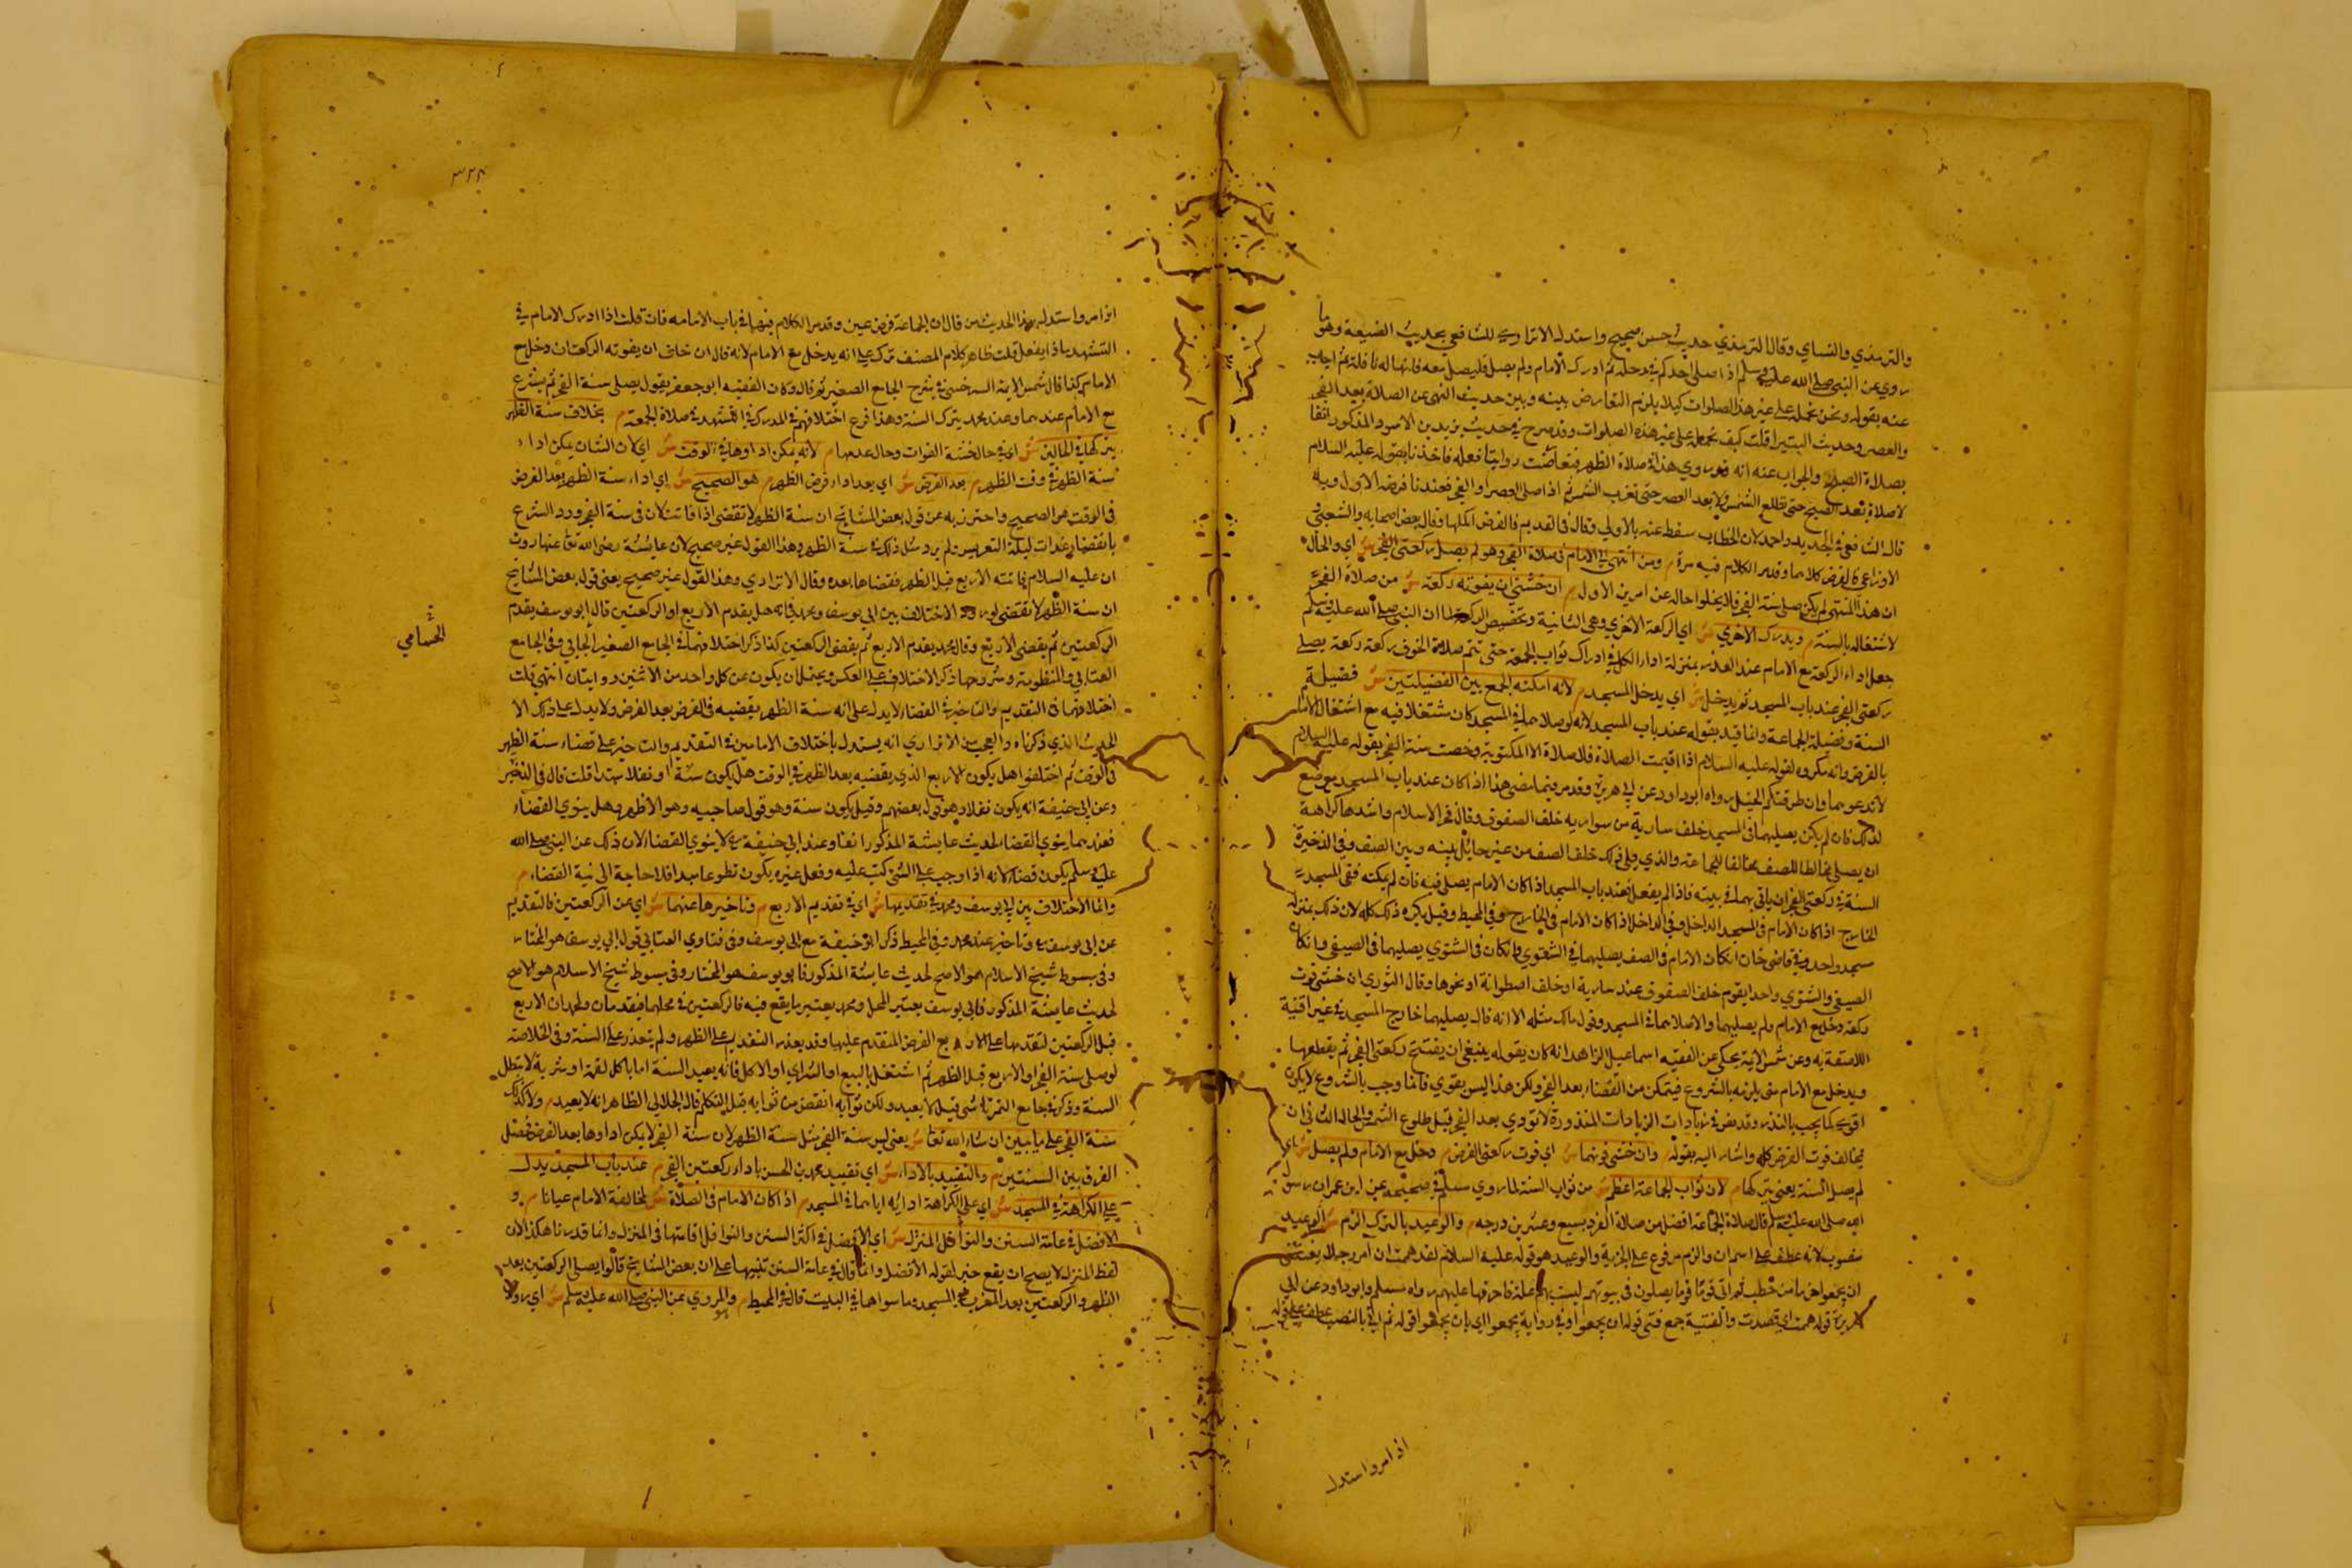 والترمذي والنساي وقال الترمذي حديث حسن صحيح واستدل الاترازي للشافعي بحديث الضيعة وهو ما
روي عن النبي صلى الله عليه وسلم اذا صلى احدكم في رحله ثم ادرك الامام ولم يصل فليصل معه فانها له نافلة ثم اجاب
عنه بقوله ونحن نحمله على غير هذا الصلوات كيلا يلزم التعارض بينه وبين حديث النهى عن الصلاة بعد الفجر
والعصر وحديث البتيرا قلت كيف نحمله على غير هذه الصلوات وقد صرح في حديث يزيد بن الاسود المذكور انفا
بصلاة الصبح والجواب عنه انه قد روي هذا في صلاة الظهر فتعارضت روايتا فعله فاخذنا بقوله عليه السلام
لاصلاة بعد الصبح حتى تطلع الشمس ولا بعد العصر حتى تغرب الشمس ثم اذا صلى العصر او الفجر فعندنا فرضه الاول وبه
قال الشافعي في الجديد واحمد لان الخطاب سقط عنه بالاولي وقال في القديم فالفرض اكملها وقال بعض اصحابه والشعبي و
الاوزاعي كالفرض كلاهما وقد مر الكلام فيه مرة م ومن انتهى الى الامام في صلاة الفجر وهو لم يصل ركعتي الفجر ش اي والحال
ان هذا المنتهي لم يكن صلى سنة الفجر فلا يخلوا حاله عن امرين الاول م ان خشي ان يفوته ركعة ش من صلاة الفجر
لاشتغاله بالسنة م ويدرك الاخري ش اي الركعة الاخري وهي الثانية وتخصيص الركعة لما ان النبي صلى الله عليه وسلم
جعل اداء الركعة مع الامام عند العذر بمنزلة اداء الكل في ادراك ثواب الجمعة حتى تتم صلاة الخوف ركعة ركعة يصلي
ركعتي الفجر عند باب المسجد ثم يدخل ش اي يدخل المسجد م لانه امكنه الجمع بين الفضيلتين ش فضيلة
السنة وفضيلة الجماعة وانما قيد بقوله عند باب المسجد لانه لو صلاهما في المسجد كان متنفلا فيه مع اشتغال الامام
بالفرض وانه مكروه لقوله عليه السلام اذا اقيمت الصلاة فلا صلاة الا المكتوبة وخصت سنة الفجر بقوله عليه السلام
لاتدعوهما وان طرقتكم الخيل رواه ابو داود عن ابي هريرة وقد مر فيما مضى هذا اذا كان عند باب المسجد موضع
لذلك فان لم يكن يصليهما في المسجد خلف سارية من سواريه خلف الصفوف وقال فخر الاسلام واشدها كراهة
ان يصلى مخالطا للصف مخالفا للجماعة والذي يلي ذلك خلف الصف من غير حايل بينه وبين الصف وفي الذخيرة
السنة في ركعتي الفجر ان ياتي بهما في بيته فاذا لم يفعل فعند باب المسجد اذا كان الامام يصلى فيه فان لم يمكنه ففي المسجد
الخارج اذا كان الامام في المسجد الداخل وفي الداخل اذا كان الامام في الخارج وفي المحيط وقيل يكره ذلك كله لان ذلك بمنزلة
مسجد واحد وفي قاضي خان ان كان الامام في الصيفي يصليهما في الشتوي وان كان في الشتوي يصليهما في الصيفي وان كان
الصيفي والشتوي واحدا يقوم خلف الصفوف عند سارية او خلف اصطوانة او نحوها وقال الثوري ان خشي فوت
ركعة دخل مع الامام ولم يصليهما والا صلاهما في المسجد وقول مالك مثله الا انه قال يصليهما خارج المسجد في غير افنية
اللاصقة به وعن شمس الائمة يحكي عن الفقيه اسماعيل الزاهد انه كان يقول ينبغي ان يفتتح ركعتي الفجر ثم يقطعهما
ويدخل مع الامام حتى يلزمه بالشروع فيتمكن من القضاء بعد الفجر ولكن هذا ليس بقوي فانما وجب بالشروع لا يكون
اقوى مما يجب بالنذر وقد نص في زيادات الزيادات المنذورة لا تودي بعد الفجر قبل طلوع الشمس والحال الثاني ان
يخالف فوت الفرض كله واشار اليه بقوله م وان خشي فوتهما ش اي فوت ركعتي الفرض م دخل مع الامام ولم يصل ش اي
لم يصل السنة يعني يتركها م لان ثواب الجماعة اعظم ش من ثواب السنة لما روي مسلم في صحيحه عن ابن عمر ان رسول
الله صلى الله عليه وسلم قال صلاة الجماعة افضل من صلاة الفرد بسبع وعشرين درجه م والوعيد بالترك الزم ش الوعيد
منصوب لانه عطف على اسم ان والزم مرفوع على الخبرية والوعيد هو قوله عليه السلام لقد هممت ان امر رجالا بفتيتي
ان يجمعوا حزما من حطب ثم اتي قوما قوما يصلون في بيوتهم ليست بهم علة فاحرقها عليهم رواه مسلم وابو داود عن ابي
هريرة قوله هممت اي قصدت والفتية جمع فتى قوله ان يجمعوا وفي رواية يجمعوا اي بان يجمعوا قوله ثم اتي بالنصب عطف على قوله
اذا امر واستدل
٣٢٤
اذا امر واستدل بهذا الحديث من قال ان الجماعة فرض عين وقد مر الكلام فيها في باب الامامه فان قلت اذا ادرك الامام في
التشهد ماذا يفعل قلت ظاهر كلام المصنف ترك على انه يدخل مع الامام لانه قال ان خاف ان يفوته الركعتان دخل مع
الامام كذا قال شمس الايمة السرخسي في شرح الجامع الصغير ثم قال وكان الفقيه ابو جعفر يقول يصلي سنة الفجر ثم يشرع
مع الامام عندهما وعند محمد يترك السنة وهذا فرع اختلافهم في المدرك في التشهد في صلاة الجمعة م بخلاف سنة الظهر
يتركها في الحالين ش اي في حال خشية الفوات وحال عدمها م لانه يمكن اداوها في الوقت ش اي لان الشان يمكن اداء
سنة الظهر في وقت الظهر م بعد الفرض ش اي بعد اداء فرض الظهر م هو الصحيح ش اي اداء سنة الظهر بعد الفرض
في الوقت هو الصحيح واحترز به عن قول بعض المشايخ ان سنة الظهر لا تقضى اذا فاتت لان في سنة الفجر ورد الشرع
بالقضاء غداة ليلة التعريس ولم يرد مثل ذلك في سنة الظهر وهذا القول غير صحيح لان عايشة رضى الله تعا عنها روت
ان عليه السلام فاتته الاربع قبل الظهر فقضاها بعده وقال الاترازي وهذا القول غير صحيح يعني قول بعض المشايخ
ان سنة الظهر لا تقضى لورود الاختلاف بين ابي يوسف ومحمد فانه هل يقدم الاربع او الركعتين قال ابو يوسف يقدم
الركعتين ثم يقضى الاربع وقال محمد يقدم الاربع ثم يقضى الركعتين كذا ذكر اختلافهما في الجامع الصغير الحسامي وفي الجامع
الحسامي
العتابي والمنظومة وشروحها ذكر الاختلاف على العكس ويحتمل ان يكون عن كل واحد من الاثنين روايتان انتهى قلت
اختلافهما في التقديم والتاخير في القضاء لا يدل على انه سنة الظهر يقضيه في الفرض بعد الفرض ولا يدل على ذلك الا
الحديث الذي ذكرناه والعجب من الاترازي انه يستدل باختلاف الامامين في التقديم والتاخير على قضاء سنة الظهر
في الوقت ثم اختلفوا هل يكون الاربع الذي يقضيه بعد الظهر في الوقت هل يكون سنة او نفلا مبتدا قلت قال في
وعن ابي حنيفة انه يكون نفلا وهو قول بعضهم وقيل يكون سنة وهو قول صاحبيه وهو الاظهر وهل ينوي القضاء
فعندهما ينوي القضاء لحديث عايشة المذكور انفا وعند ابي حنيفة رح لا ينوي القضاء لان ذلك عن النبي صلى الله
عليه وسلم يكون قضاء لانه اذا وجب على الشي كتب عليه وفعل غيره يكون تطوعا مبدا فلا حاجة الى نية القضاء م
وانما الاختلاف بين ابي يوسف ومحمد في تقديمها ش اي في تقديم الاربع م وتاخيرها عنهما ش اي عن الركعتين فالتقديم
عن ابي يوسف رح وتاخير عند محمد وفي المحيط ذكر ابو حنيفة مع ابي يوسف وفي فتاوي العتابي قول ابي يوسف هو المختار
وفي مبسوط شيخ الاسلام هو الاصح لحديث عايشة المذكور فابو يوسف هو المختار وفي مبسوط شيخ الاسلام هو الاصح
لحديث عايشة المذكور فابي يوسف يعتبر المحل ومحمد يعتبر ما يقع فيه فالركعتين في محلهما فيقدمان ولمحمد ان الاربع
قبل الركعتين لتقدمها على الاربع الفرض المتقدم عليها وقد بعذر التقديم على الظهر ولم يتعذر على السنة وفي الخلاصة
لو صلى سنة الفجر او الاربع قبل الظهر ثم اشتغل بالبيع او الشراي او الاكل فانه يعيد السنة اما باكل لقمة او شربة لا يبطل
السنة وذكر في جامع التمرتاشي قيل لا يعيد ولكن ثوابه انقص من ثوابه قبل التكلم قال الجلالي الظاهر انه لا يعيد م ولا كذلك
سنة الفجر على ما يبين ان شاء الله تعا ش يعني ليس سنة الفجر مثل سنة الظهر لان سنة الفجر لا يمكن اداوها بعد الفرض فحصل
الفرق بين السنتين م والتقييد بالاداء ش اي تقييد محمد بن الحسن باداء ركعتين الفجر م عند باب المسجد يدل
على الكراهة في المسجد ش اي على الكراهة ادايه اياهما في المسجد م اذا كان الامام في الصلاة ش لمخالفة الامام عيانا م و
الافضل في عامة السنن والنوافل المنزل ش اي الافضل في اكثر السنن والنوافل اقامتها في المنزل وانما قدرنا هكذا لان
لفظ المنزل لا يصح ان يقع خبر لقوله الافضل وانما قال في عامة السنن تنبيها على ان بعض المشايخ قالوا يصلى الركعتين بعد
الظهر والركعتين بعد المغرب في المسجد وما سواهما في البيت قال في المحيط م والمروي عن النبي صلى الله عليه وسلم ش اي